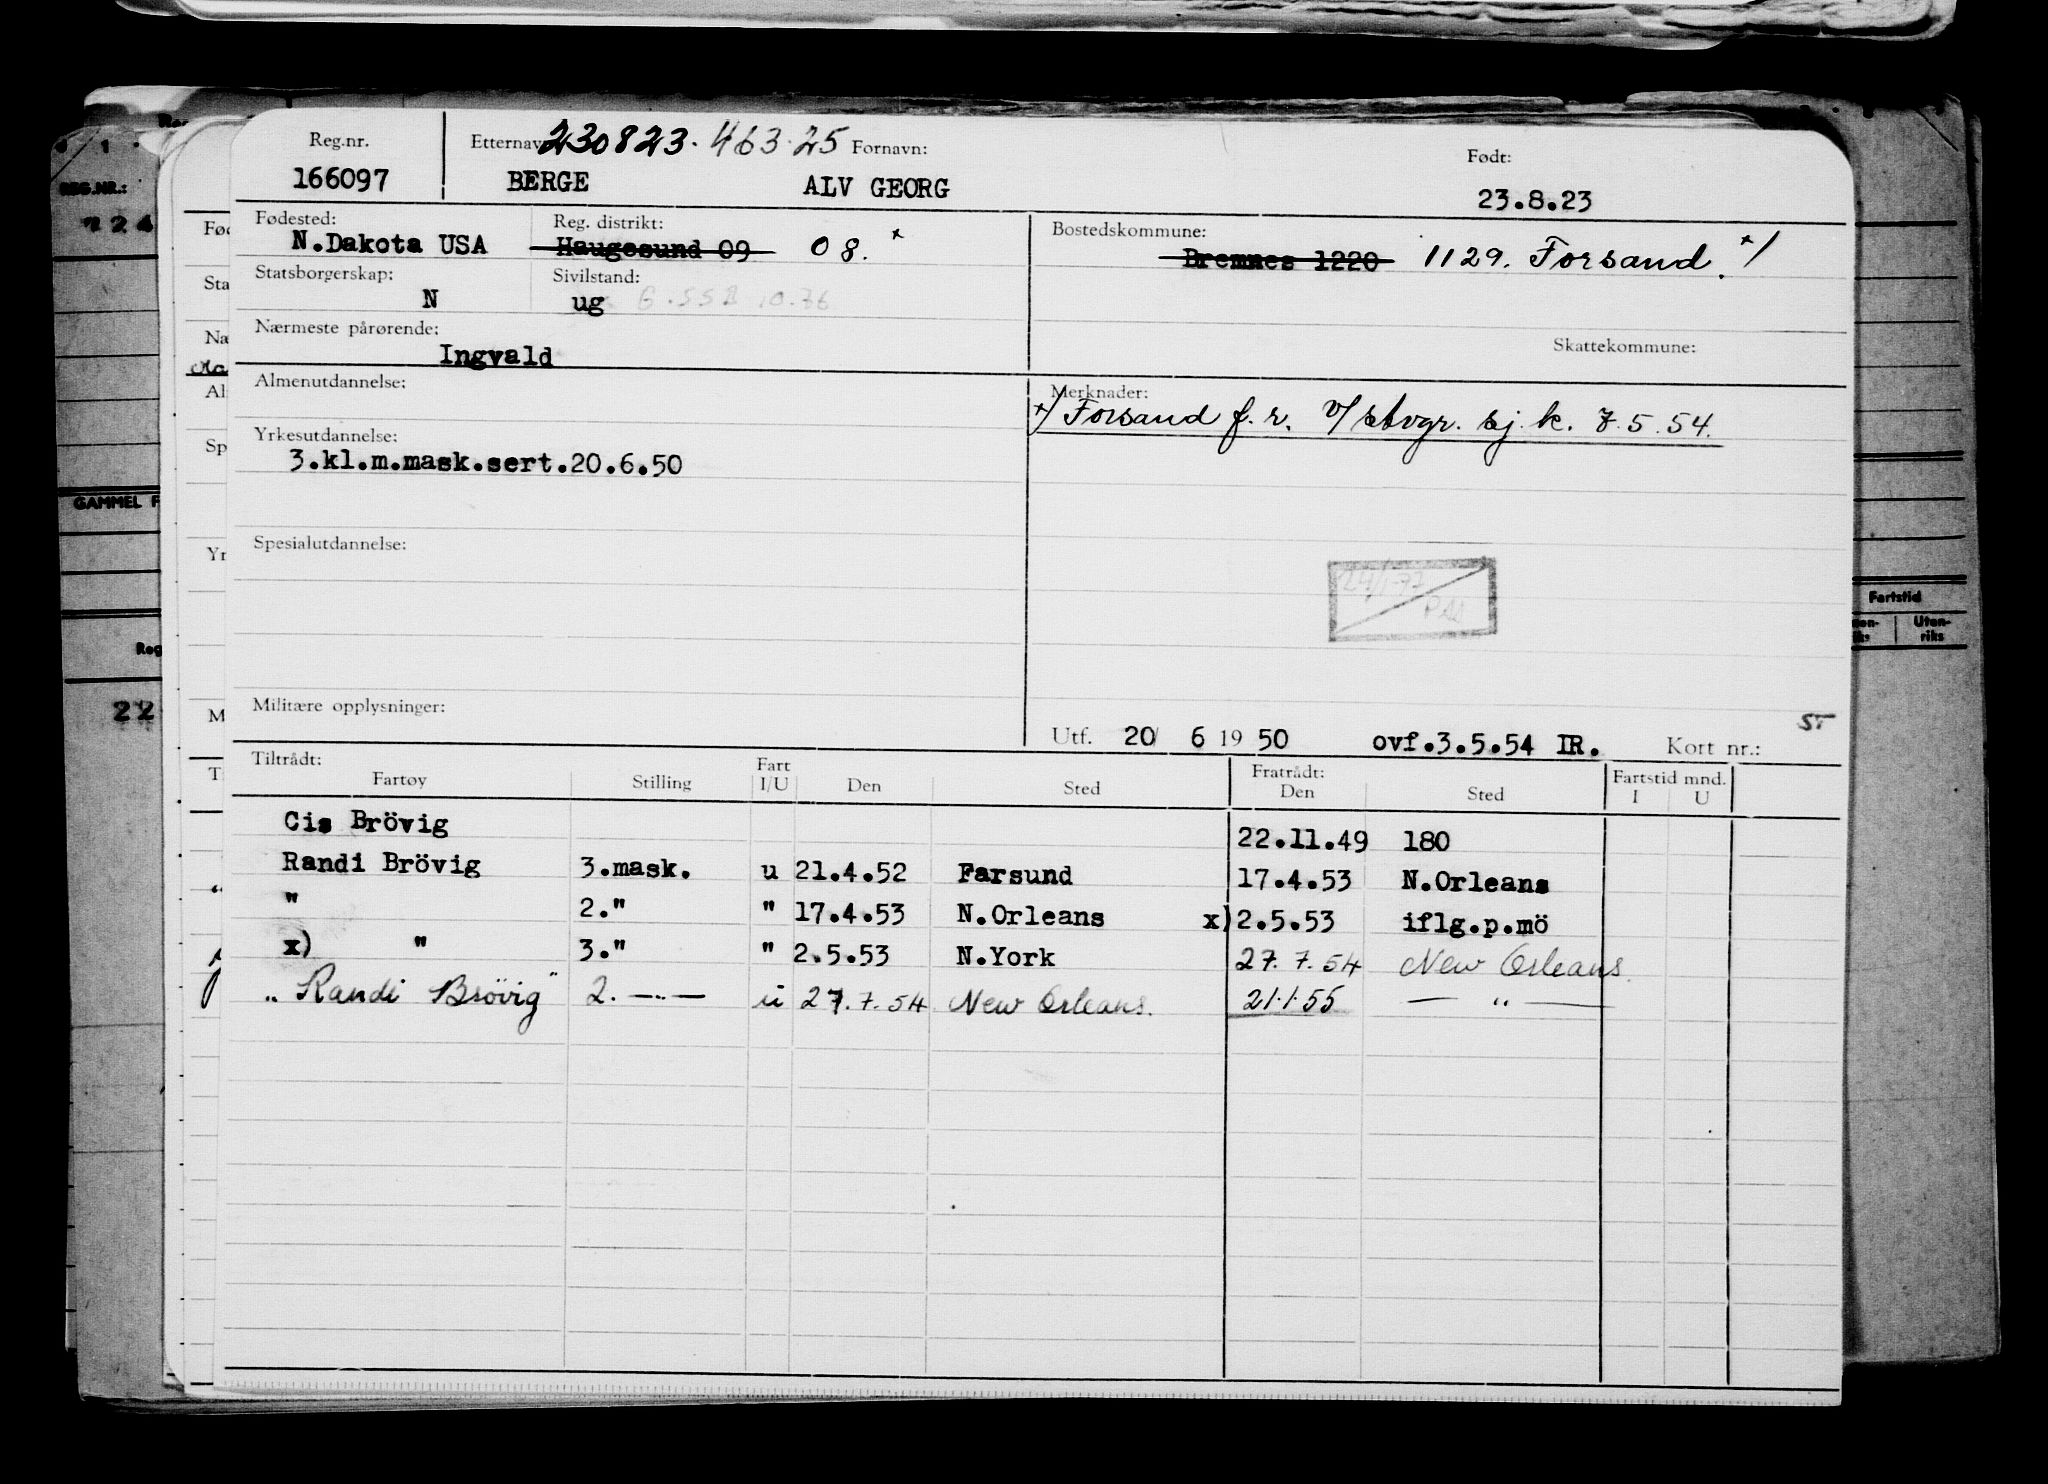 Reg.nr. Etternavn 230823. 463 25 Fornavn: Født:
166097 BERGE ALV GEORG 23.8.23
Fødested: Reg. distrikt: Bostedskommune:
N.Dakota USA Haugesund 09 08. x Bremnes 1220 1129. Forsand. x/
Statsborgerskap: Sivilstand:
N ug
Nærmeste pårørende: Skattekommune:
Ingvald
Almenutdannelse: Merknader:
x/ Forsand f. r. v/ stvgr. sj. k. 7.5.54.
Yrkesutdannelse:
3.kl.m.mask.sert.20.6.50
Spesialutdannelse:
24/1-77
Militære opplysninger:
ST
Utf. 20/ 6 19 50 ovf.3.5.54 IR. Kort nr.:
Tiltrådt: Fratrådt: Fartstid mnd.
Fartøy Stilling Fart I/U Den Sted Den Sted I U
Cis Brövig 22.11.49 180
Randi Brövig 3.mask. u 21.4.52 Farsund 17.4.53 N.Orleans
" 2." " 17.4.53 N.Orleans x) 2.5.53 iflg.p.mö
x) " 3." " 2.5.53 N.York 27.7.54 New Orleans
"Randi Brövig" 2. —"— u 27.7.54 New Orleans. 21.1.55 — " —
REG.NR.:
GAMMEL F
Reg
22
Fartstid
Uten-
riks